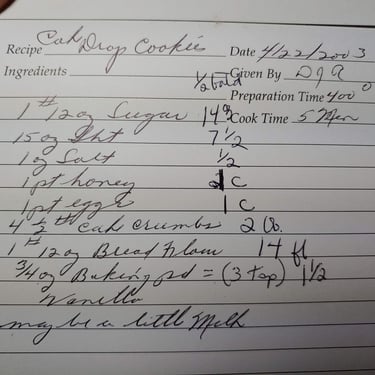 Recipe Cak Drop Cookies Date 4/22/2003
Ingredients 1/2 batd Given By DJA
Preparation Time 400 0
1 # 12 oz Sugar 14 oz Cook Time 5 Min
15 oz Sht 7 1/2
1 oz Salt 1/2
1 pt honey 1 c
1 pt eggs 1 c
4 1/2 # Cak Crumbs 2 lb.
1 # 12 oz Bread Flour 14 fl
3/4 oz Baking pd = (3 tsp) 1 1/2
Vanilla
maybe a little Milk